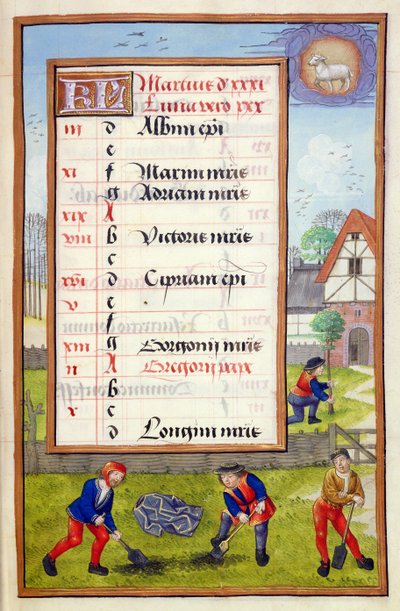 KL Martius d xxxi
Luna vero xxx
iii d Albini epi
e
xi f Marini mris
g Adriani mris
xix A
viii b Victoris mris
c
xvi d Cipriani epi
v e
f
xiii g Gorgonij mris
ii A Gregorij pp
b
x c
d Longini mris